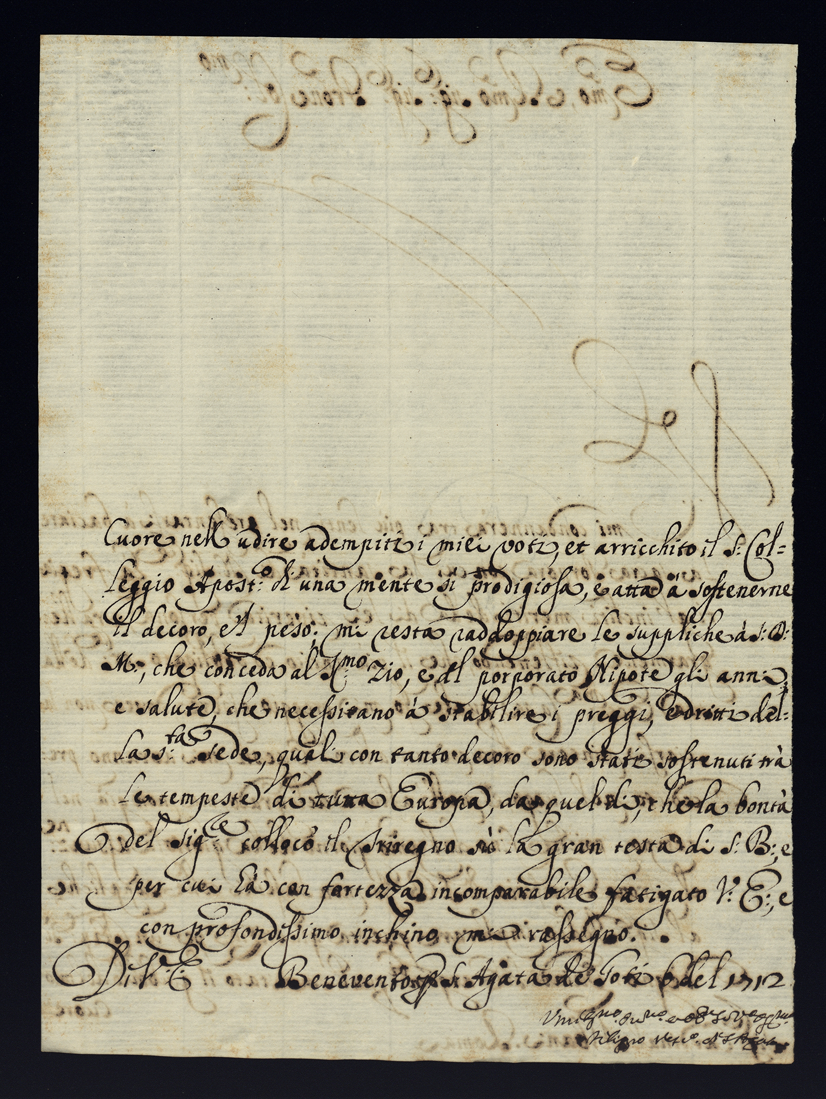 Cuore nell'udire adempiti i miei voti, et arricchito il S: Col=
leggio Apost:o di una mente sì prodigiosa, e atta à sostenerne
il decoro, e'l peso; mi resta raddoppiare le suppliche à S: D:
M:, che conceda al Zio, e al porporato Nipote gli anni,
e salute, che necessitano à stabilire i preggi, e dritti del=
la S:ta Sede, quali con tanto decoro sono stati sostenuti trà
le tempeste di tutta Europa, da quel dì, che la bontà
del Sig:re collocò il Triregno sù la gran testa di S: B:, e
per cui hà con fortezza incomparabile fatigato V: E:, e
con profondissimo inchino mi rassegno.
Di V: E: Benevento S: Agata de Goti 6 del 1712